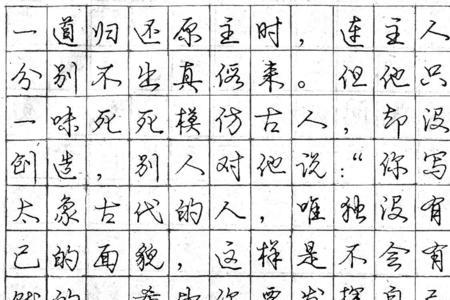 一道归还原主时，连主人
分别不出真俗来。但他只
一味死死模仿古人，却没
创造，别人对他说：“你写
太象古代的人，唯独没有
己的面貌，这样是不会有